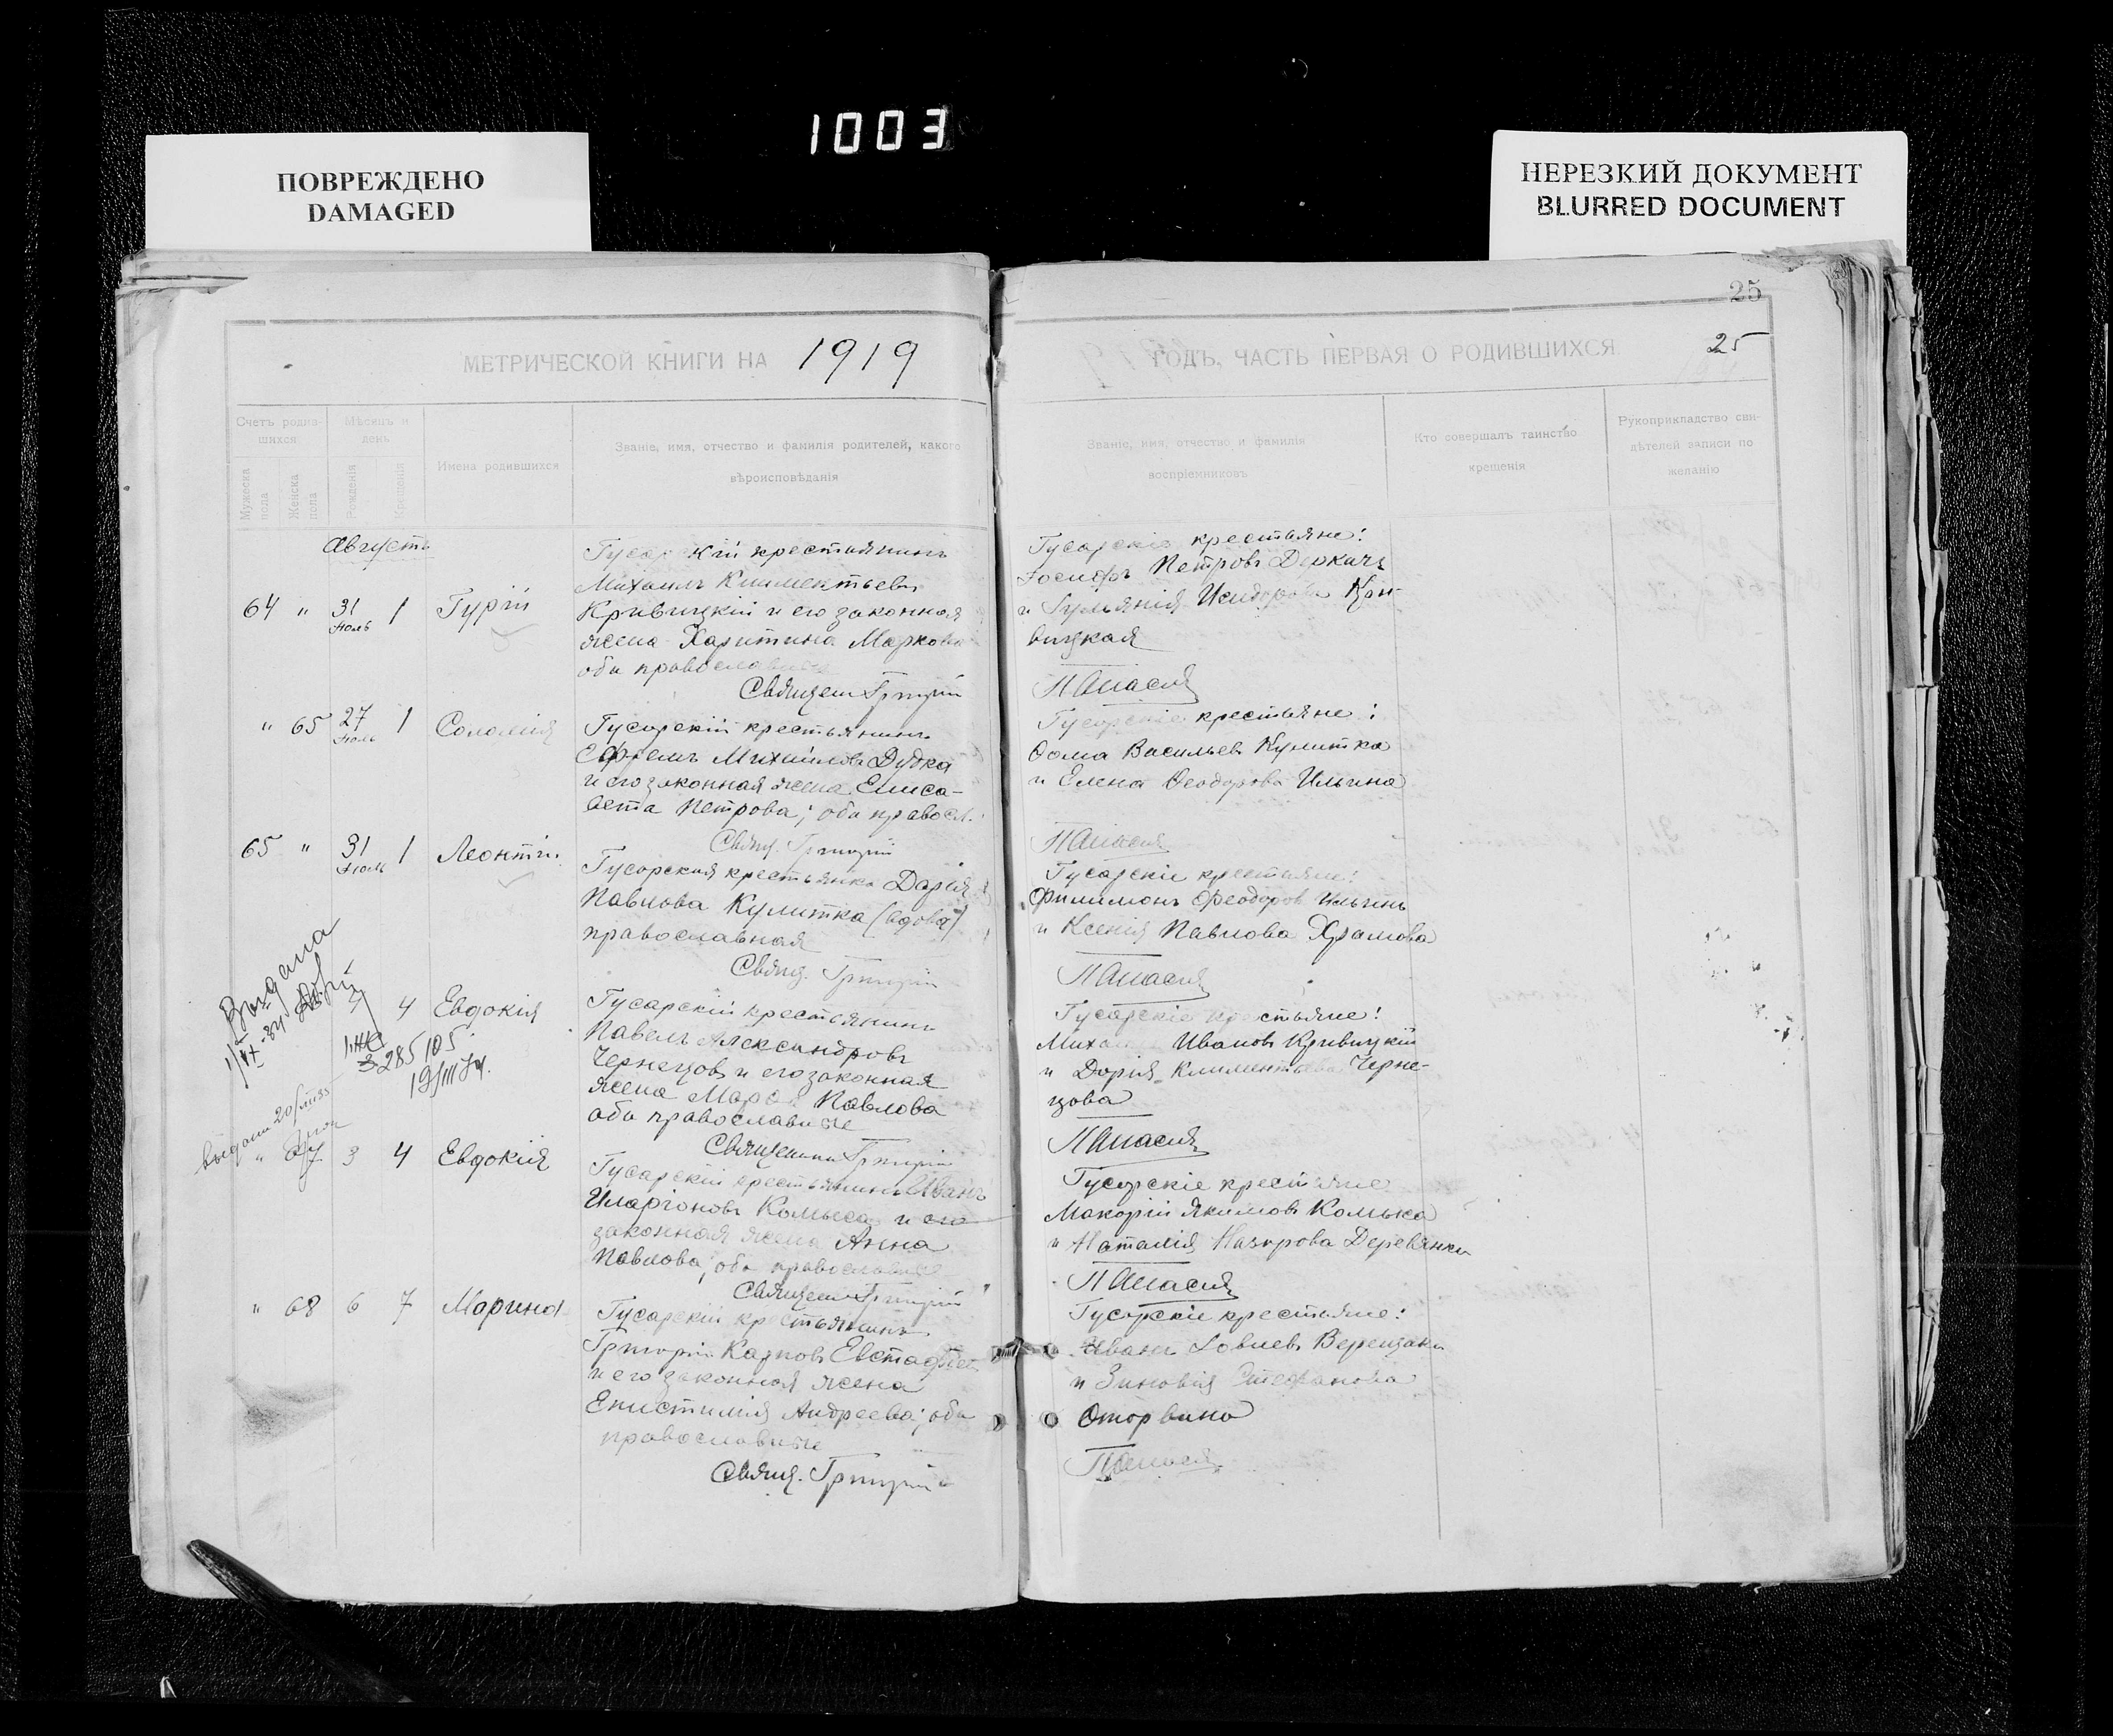 1003
ПОВРЕЖДЕНО
DAMAGED
НЕРЕЗКИЙ ДОКУМЕНТ
BLURRED DOCUMENT
МЕТРИЧЕСКОЙ КНИГИ НА 1919
Счетъ родив-
шихся
Мужеска
пола
Женска
пола
Мѣсяцъ и
день
Рожденія
Крещенія
Имена родившихся
Званіе, имя, отчество и фамилія родителей, какого
вѣроисповѣданія
Августъ
64 " 31 Іюль 1 Гурій
Гусарскій крестьянинъ
Михаилъ Климентьевъ
Кривицкій и его законная
жена Харитина Маркова
оба православные
Священ Григорій
" 65 27 Іюль 1 Соломія
Гусарскій крестьянинъ
Ефремъ Михайловъ Дудка
и его законная жена Елиса-
вета Петрова; оба правосл.
Свящ. Григорій
65 " 31 Іюль 1 Леонтій
Гусарская крестьянка Дарія
Павлова Кулитка (вдова)
православная
Свящ. Григорій
Выдана
4 4 Евдокія
285105
19/III
Гусарскій крестьянинъ
Павелъ Александровъ
Чернецовъ и его законная
жена Марія Павлова
оба православные
Священникъ Григорій
" 67 3 4 Евдокія
Гусарскій крестьянинъ Иванъ
Иларіоновъ Колыса и его
законная жена Анна
Павлова; оба православные
Священ Григорій
" 68 6 7 Марина
Гусарскій крестьянинъ
Григорій Карповъ
и его законная жена
Епистимія Андреева; оба
православные
Свящ. Григорій
25
ГОДЪ, ЧАСТЬ ПЕРВАЯ О РОДИВШИХСЯ 25
Званіе, имя, отчество и фамилія
воспріемниковъ
Кто совершалъ таинство
крещенія
Рукоприкладство сви-
дѣтелей записи по
желанію
Гусарскіе крестьяне:
Іосифъ Петровъ Деркачъ
и Исидорова Кри-
вицкая
Гусарскіе крестьяне:
Ѳома Васильевъ Кулитка
и Елена Ѳеодорова Ильина
Гусарскіе крестьяне:
Филимонъ Ѳеодоровъ Ильинъ
и Ксенія Павлова Храмова
Гусарскіе крестьяне:
Михаилъ Ивановъ Кривицкій
и Дарія Климентьева Черне-
цова
Гусарскіе крестьяне
Макарій Якимовъ
и Наталія Назарова Деревянки
Гусарскіе крестьяне:
Иванъ Іовлевъ Верещака
и Зиновія Стефанова